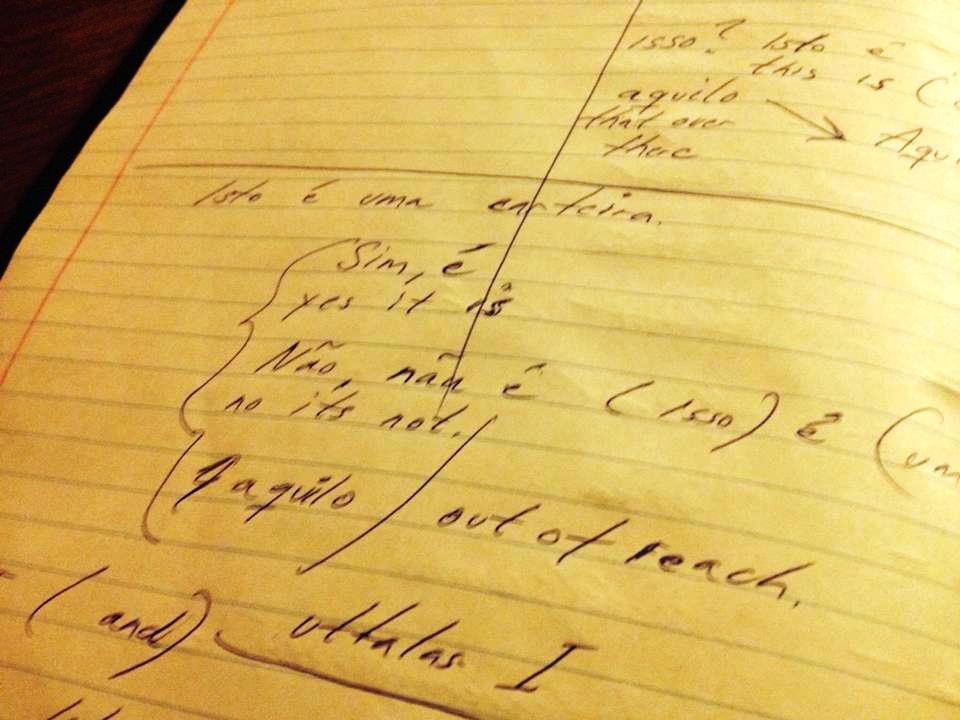 isso? Isto é
this is
aquilo
that over
there
Isto é uma carteira.
Sim, é
yes it is
Não, não é (isso) é (um
no its not.
aquilo) out of reach.
(and) uttalas I